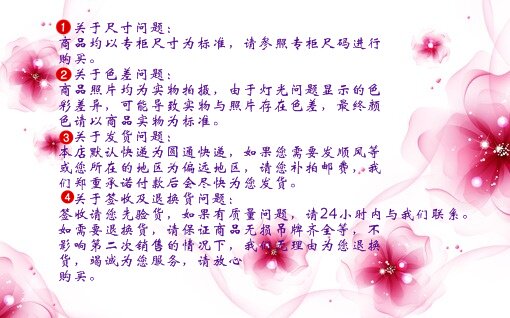 ❶关于尺寸问题：
商品均以专柜尺寸为标准，请参照专柜尺码进行
购买。
❷关于色差问题：
商品照片均为实物拍摄，由于灯光问题显示的色
彩差异，可能导致实物与照片存在色差，最终颜
色请以商品实物为标准。
❸关于发货问题：
本店默认快递为圆通快递，如果您需要发顺风等
或您所在的地区为偏远地区，请您补拍邮费，我
们郑重承诺付款后会尽快为您发货。
❹关于签收及退换货问题：
签收请您先验货，如果有质量问题，请24小时内与我们联系。
如需要退换货，请保证商品无损吊牌齐全等，不
影响第二次销售的情况下，我们无理由为您退换
货，竭诚为您服务，请放心
购买。